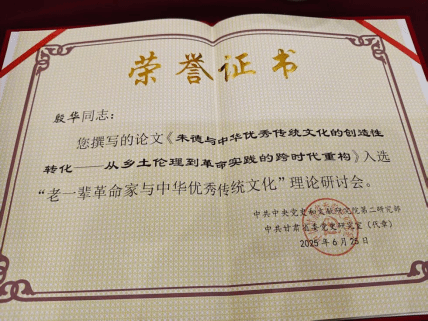 荣誉证书
殷华同志：
您撰写的论文《朱德与中华优秀传统文化的创造性
转化——从乡土伦理到革命实践的跨时代重构》入选
“老一辈革命家与中华优秀传统文化”理论研讨会。
中共中央党史和文献研究院第二研究部
中共甘肃省委党史研究室（代章）
2025年6月25日